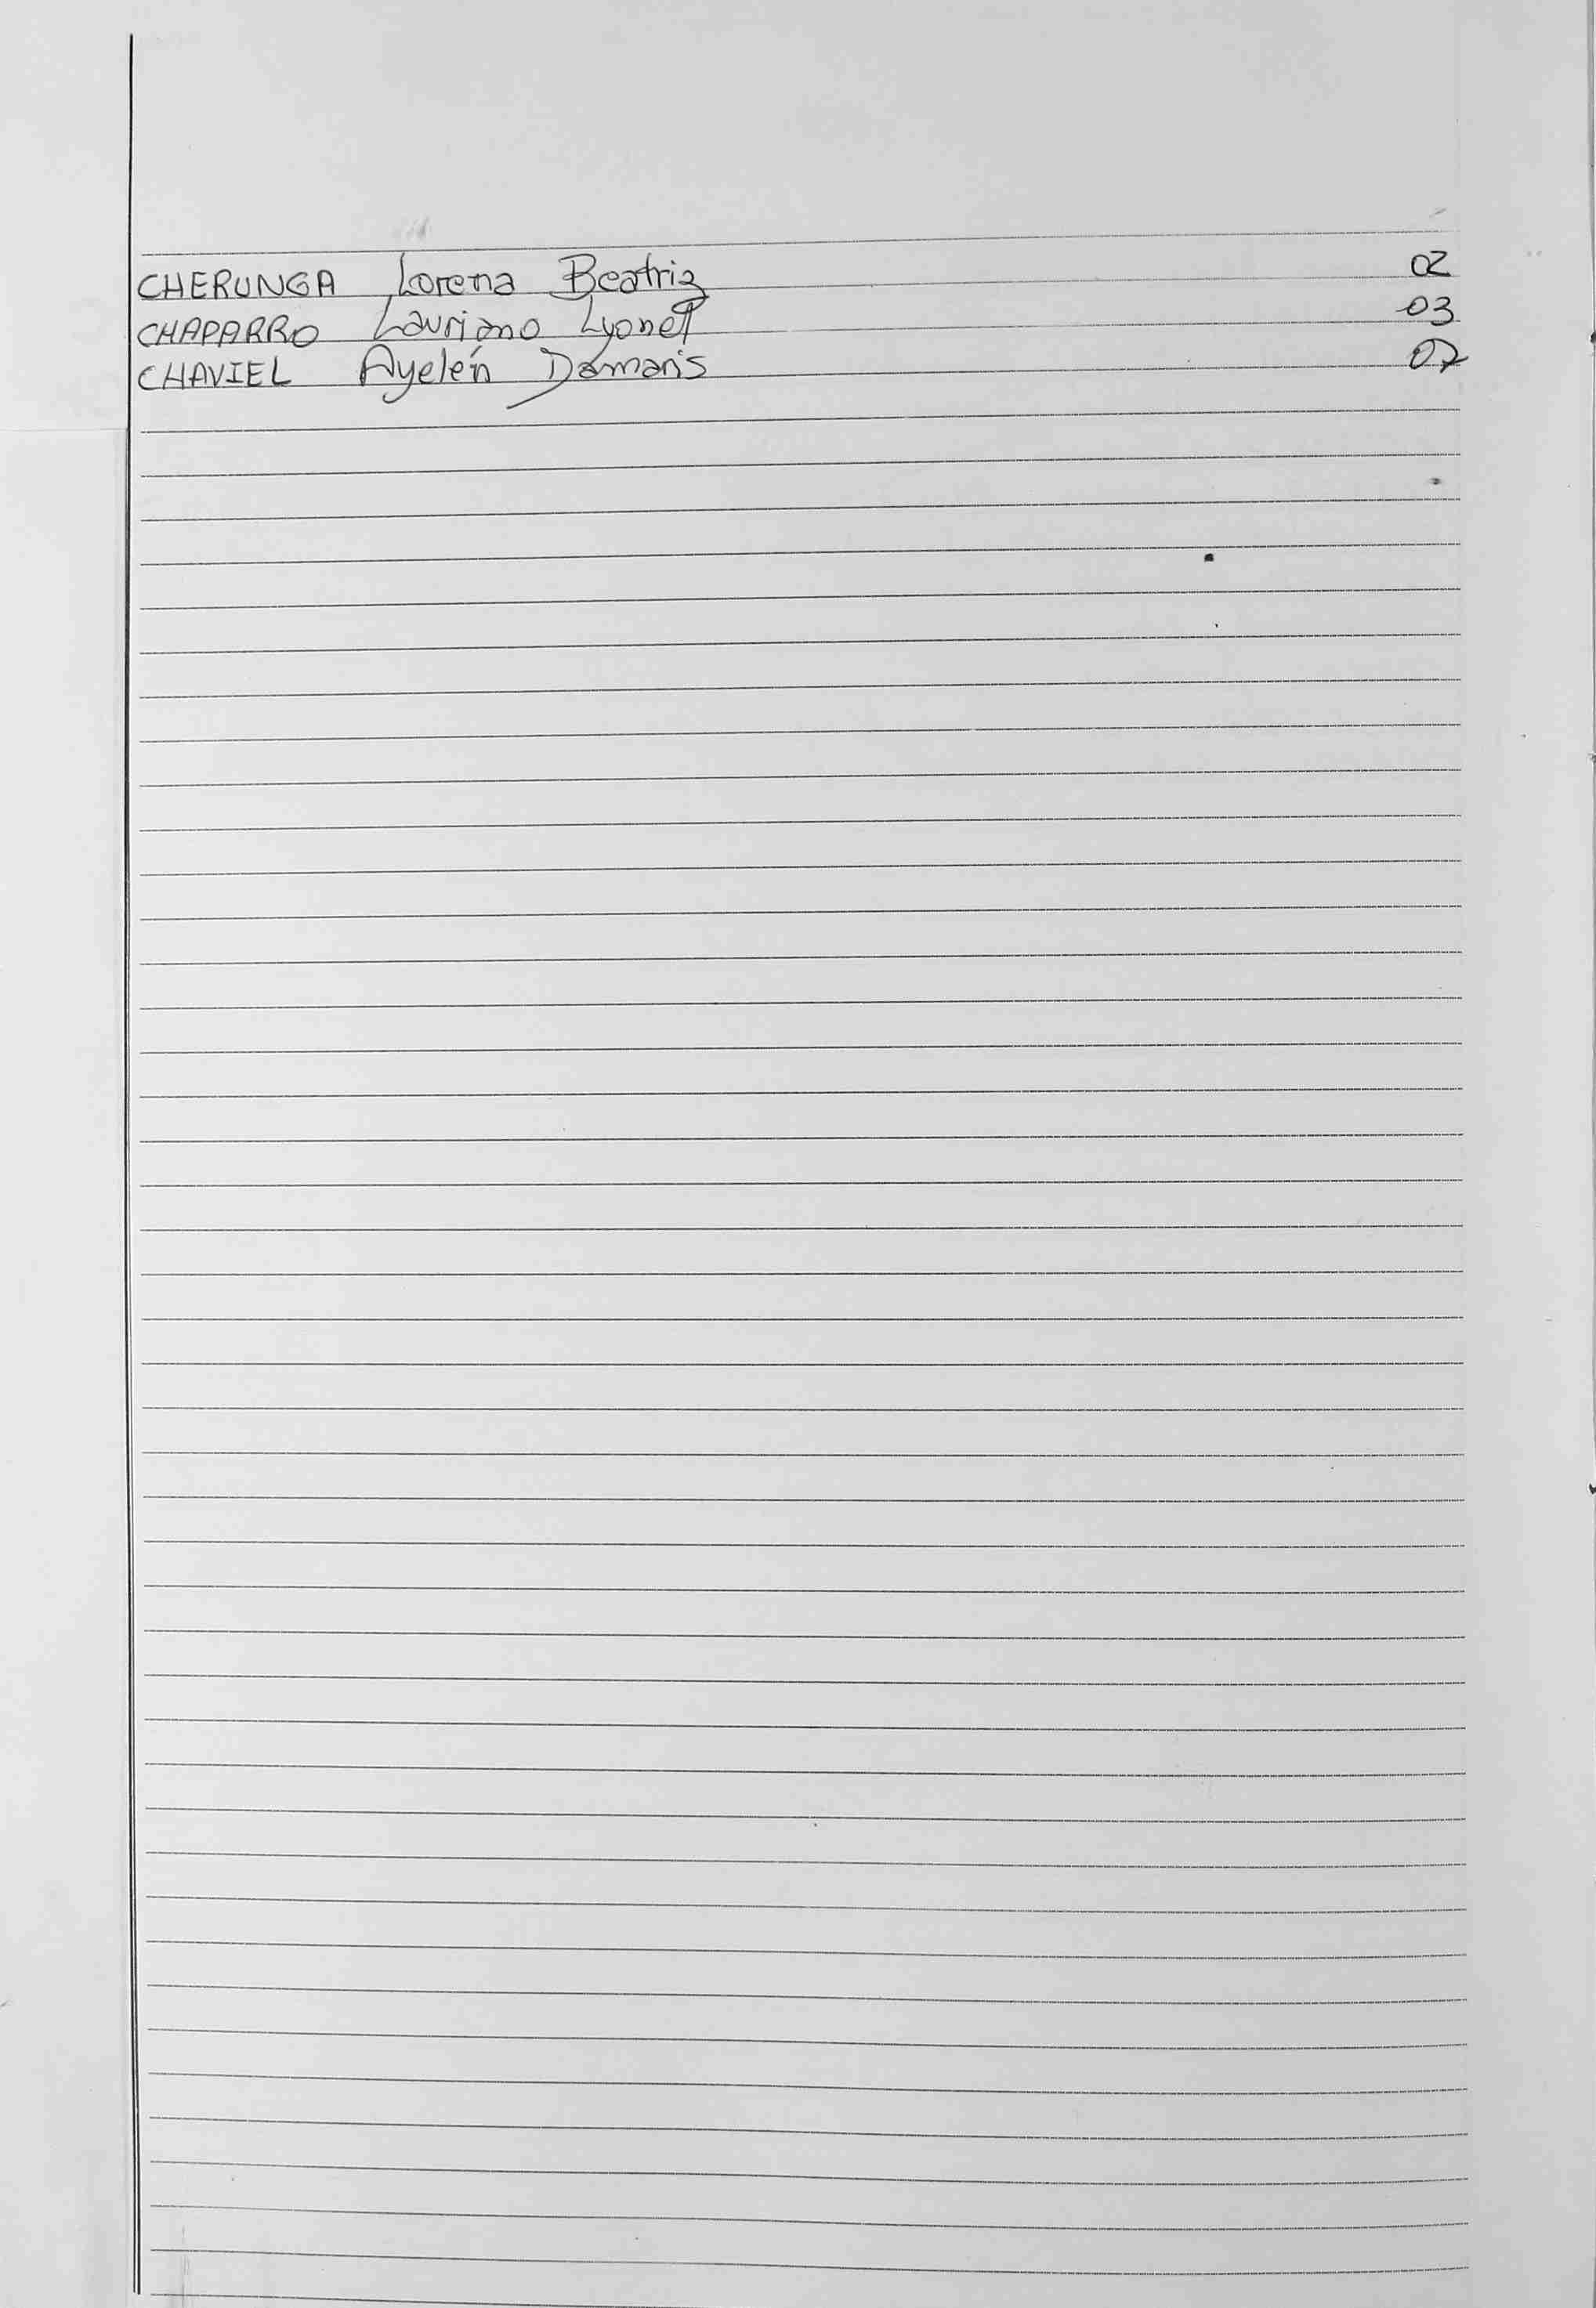 CHERUNGA Lorena Beatriz 02
CHAPARRO Lauriano Lyonel 03
CHAVIEL Ayelén Damaris 07